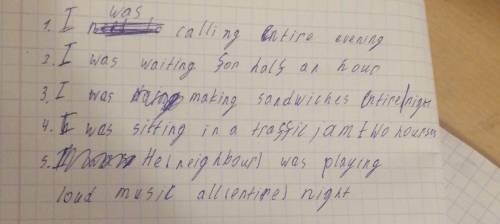 was
1. I calling entire evening
2. I was waiting for half an hour
3. I was making sandwiches entire night
4. I was sitting in a traffic jam two hours
5. He(neighbour) was playing
loud music all(entire) night